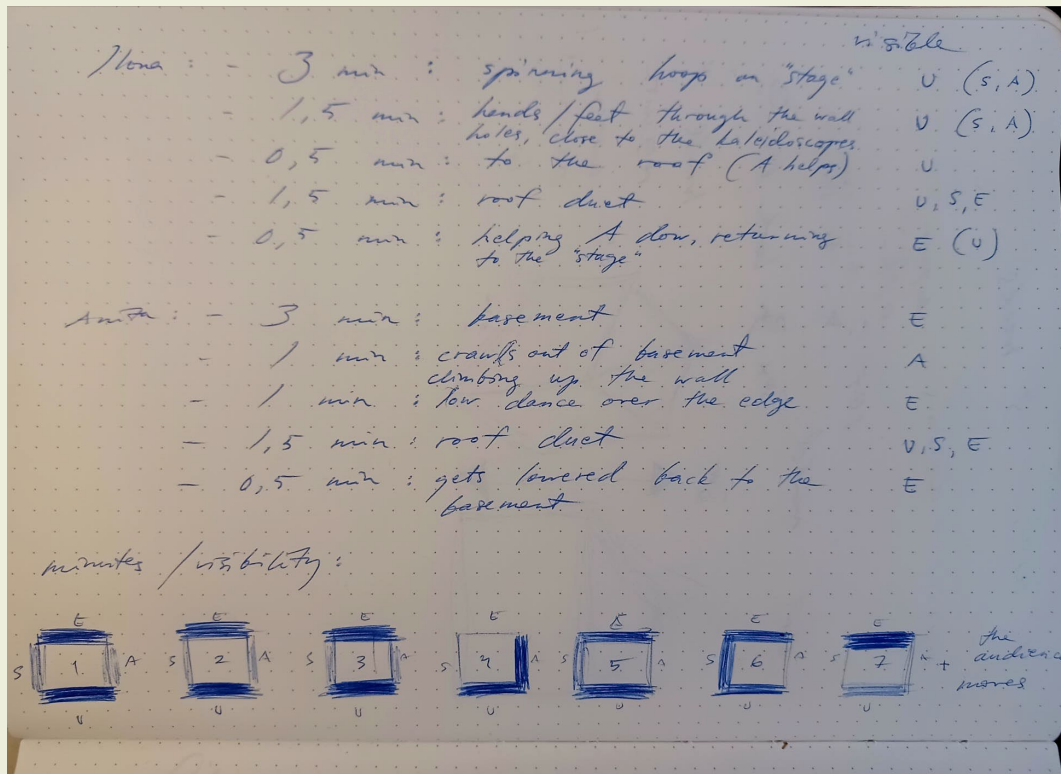 visible
Ilona : - 3 min : spinning hoop on "stage" U (S, A)
- 1,5 min : hands / feet through the wall U (S, A)
holes, close to the kaleidoscopes
- 0,5 min : to the roof (A helps) U
- 1,5 min : roof duet U, S, E
- 0,5 min : helping A dow, returning E (U)
to the "stage"
Anita : - 3 min : basement E
- 1 min : crawls out of basement A
climbing up the wall
- 1 min : low dance over the edge E
- 1,5 min : roof duet U, S, E
- 0,5 min : gets lowered back to the E
basement
minutes / visibility :
E E E E E E E
S 1 A S 2 A S 3 A S 4 A S 5 A S 6 A S 7 A + the
audience
moves
U U U U U U U